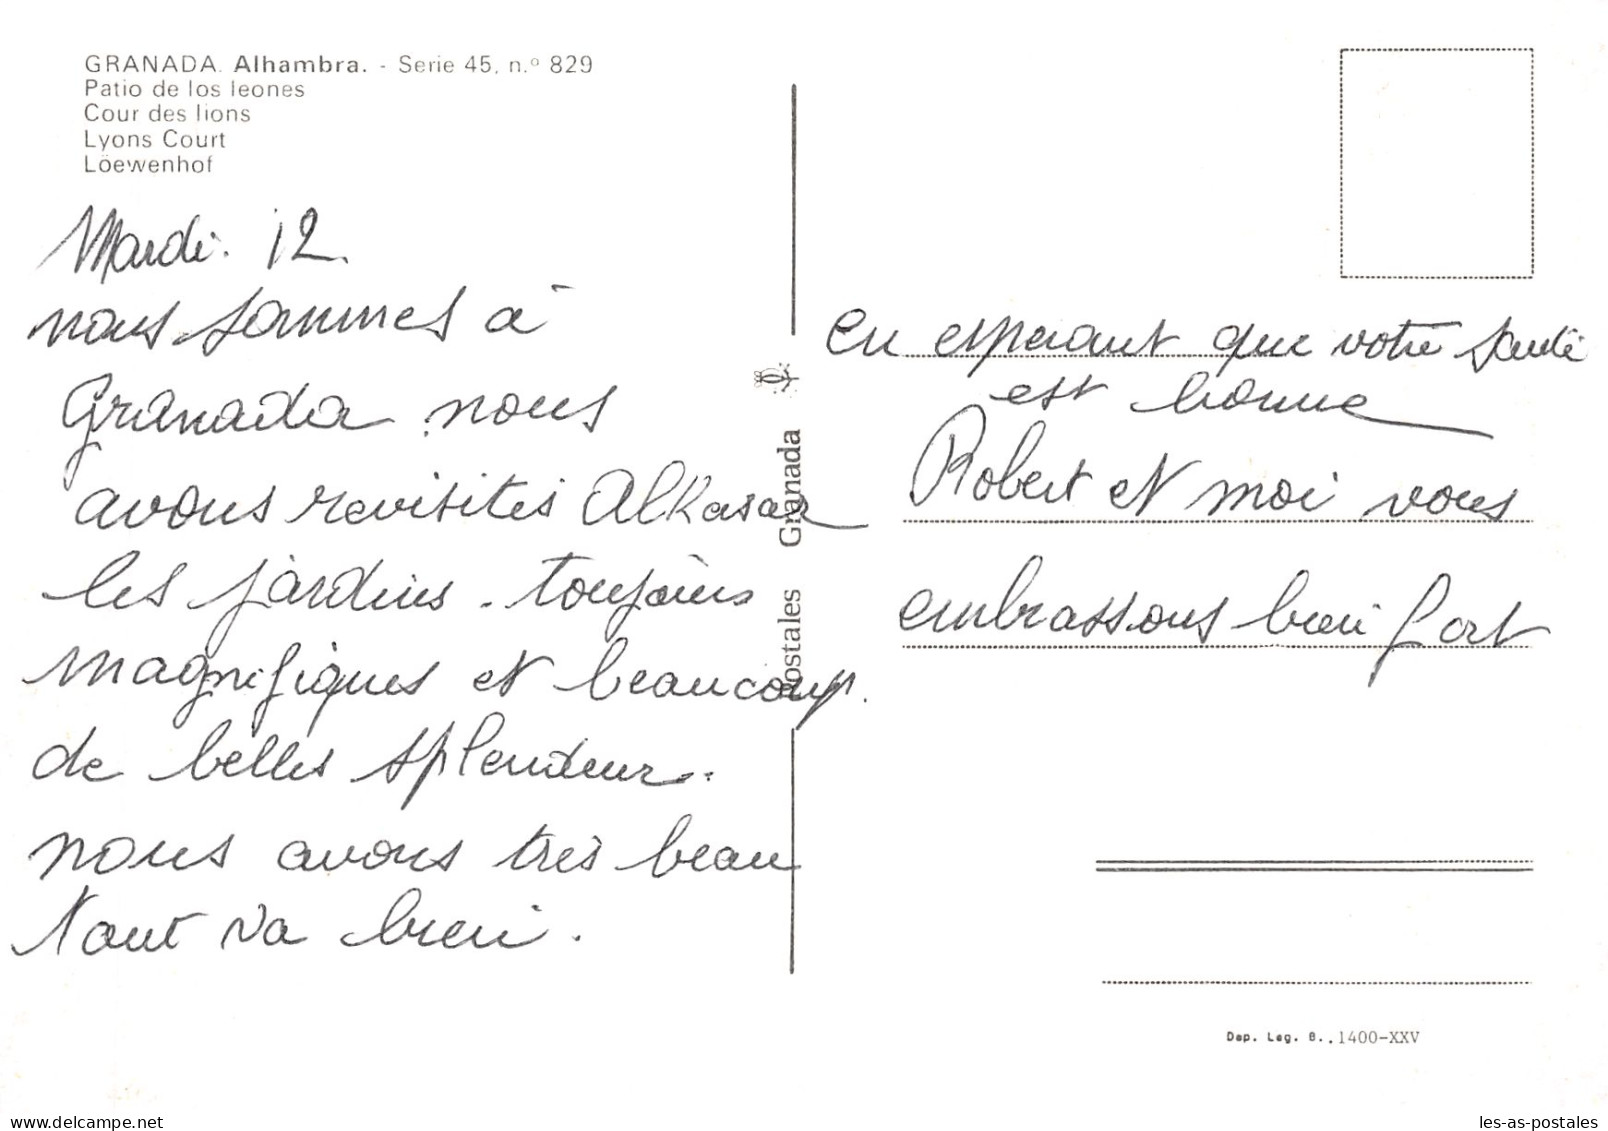 GRANADA. Alhambra. - Serie 45, n.º 829
Patio de los leones
Cour des lions
Lyons Court
Löewenhof
Mardi. 12.
nous sommes à
Granada. nous
avons revisités Alkasar
les jardins. toujours
magnifiques et beaucoup.
de belles splendeurs.
nous avons très beau
tout va bien.
Postales Granada
en esperant que votre santé
est bonne
Robert et moi vous
embrassons bien fort
Dep. Leg. B..1400-XXV
les-as-postales